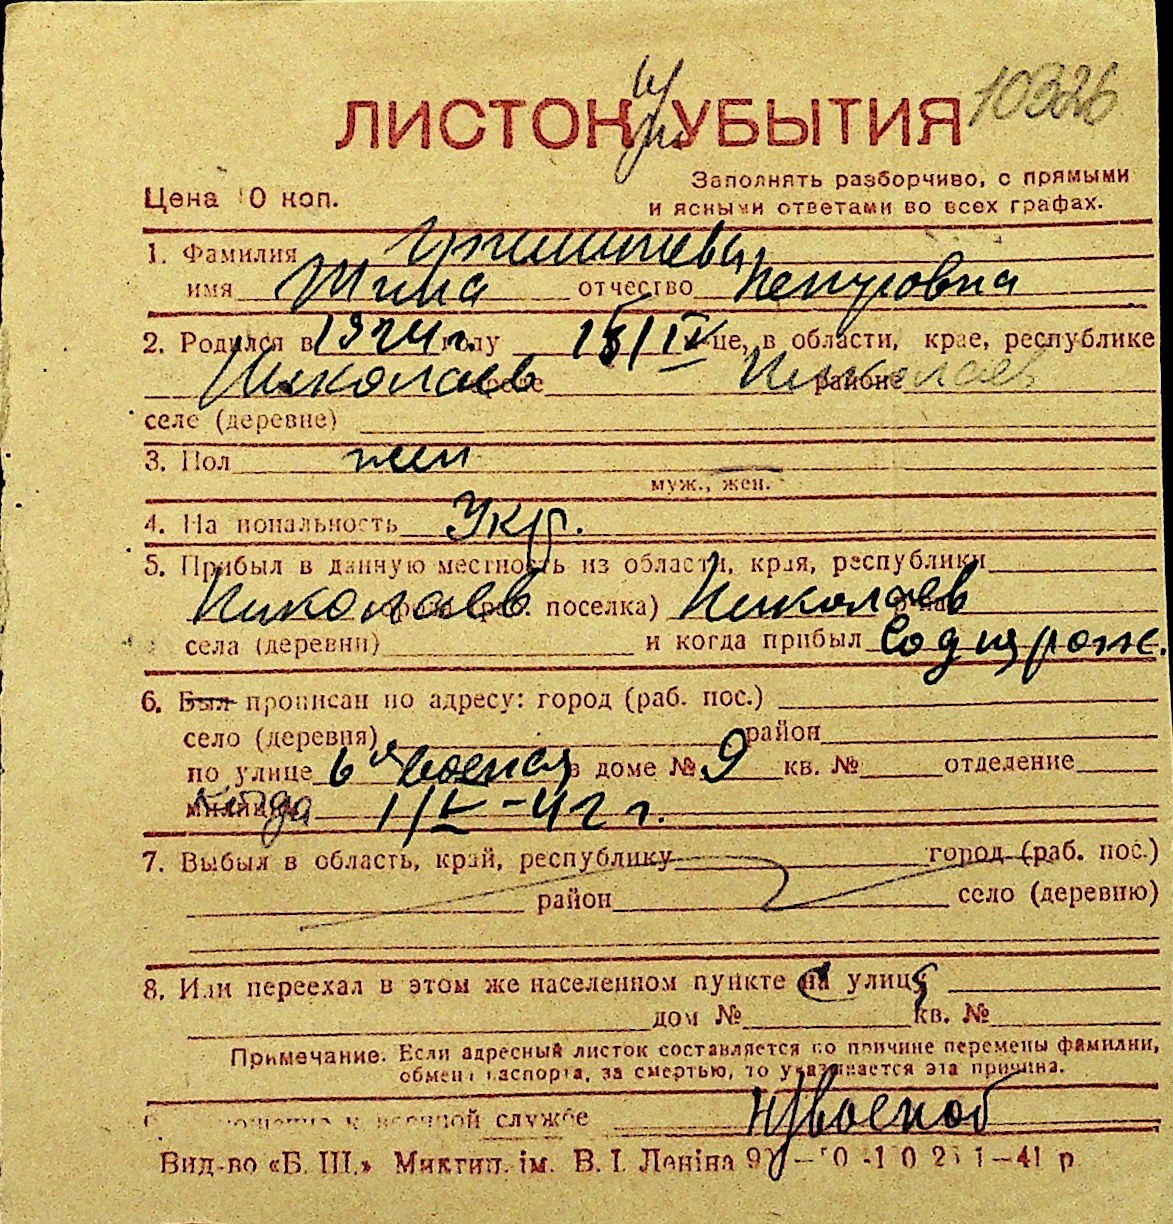 ЛИСТОК УБЫТИЯ 10326
Цена 10 коп.
Заполнять разборчиво, с прямыми
и ясными ответами во всех графах.
1. Фамилия
имя отчество Петровна
2. Родился в 1924 г. году 15/IV це, в области, крае, республике
Николаев районе Николаев
селе (деревне)
3. Пол жен
муж., жен.
4. Национальность Укр.
5. Прибыл в данную местность из области, края, республики
Николаев города (раб. поселка) Николаев р-на
села (деревни) и когда прибыл
6. Был прописан по адресу: город (раб. пос.)
село (деревня) район
по улице 6 я военная в доме № 9 кв. № отделение
милиции Когда 1/V-42 г.
7. Выбыл в область, край, республику город (раб. пос.)
район село (деревню)
8. Или переехал в этом же населенном пункте на улицу
дом № кв. №
Примечание. Если адресный листок составляется по причине перемены фамилии,
обмена паспорта, за смертью, то указывается эта причина.
9. Отношение к военной службе н/военоб
Вид-во «Б. Ш.» Миктип. ім. В. І. Леніна